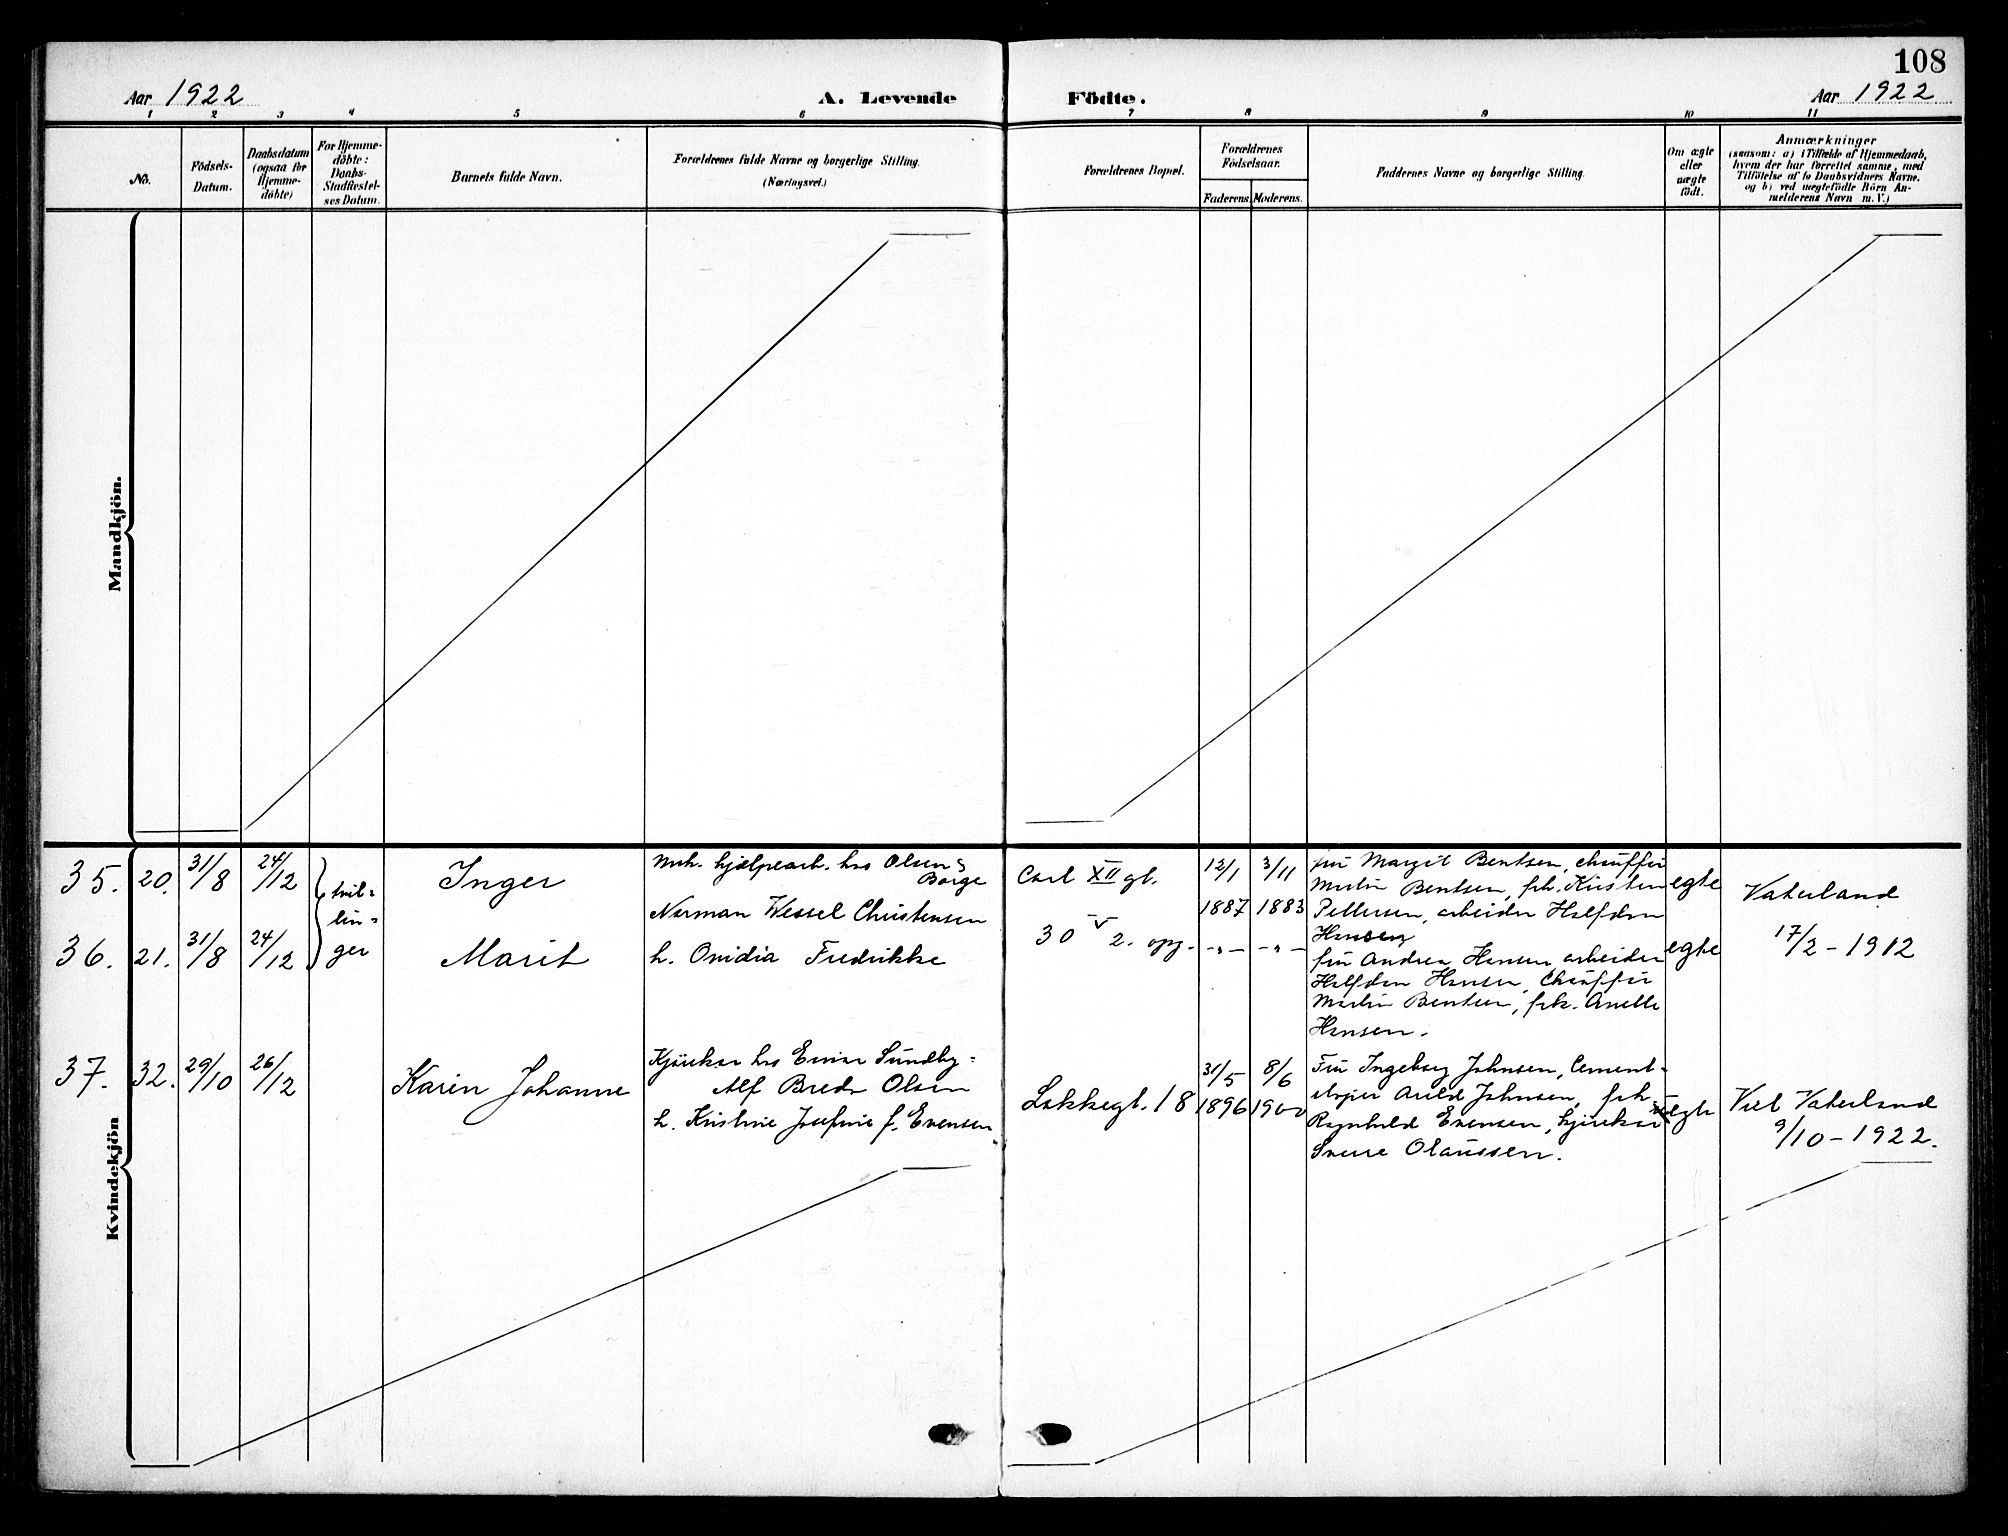 108
Aar 1922
A. Levende Födte.
Aar 1922
1 2 3 4 5 6 7 8 9 10 11
No.
Födsels-
Datum.
Daabsdatum
(ogsaa for
Hjemme-
döbte)
For Hjemme-
döbte:
Daabs-
Stadfæstel-
ses Datum.
Barnets fulde Navn.
Forældrenes fulde Navne og borgerlige Stilling.
(Næringsvei.)
Forældrenes Bopæl.
Forældrenes
Födselsaar.
Faderens. Moderens.
Faddernes Navne og borgerlige Stilling.
Om ægte
eller
uægte
födt.
Anmærkninger
(saasom: a) i Tilfælde af Hjemmedaab,
hvem der har forrettet samme, med
Tilföielse af to Daabsvidners Navne.
og b) ved uægtefödte Börn An-
melderens Navn m. V.)
Mandkjön.
Kvindekjön
35. 20. 31/8 24/12
tvil-
lin-
ger
Inger
hjælpearb. hos Olsen &
Borge
Norman Wessel Christensen
Carl XII gt.
30 2. opg.
12/1 3/11
1887 1883
fru Margit Bentsen, chauffør
Martin Bentsen, frk. Kirsten
Pettersen, arbeider Halfdan
Hansen
egte
Vaterland
17/2 - 1912
36. 21. 31/8 24/12
Marit
h. Ovidia Fredrikke
-"- -"-
fru Andrea Hansen arbeider
Halfdan Hansen, Chauffør
Martin Bentsen, frk. Anette
Hansen.
egte
37. 32. 29/10 26/12
Karin Johanne
Kjørekar hos Einar Sundby-
Alf Olsen
h. Kristine Josefine f. Evensen
Lakkegt. 18
31/5 8/6
1896 1900
Fru Ingeborg Johnsen, Cement-
støper Arild Johnsen, frk.
Ragnhild Evensen, kjørekar
Sverre Olaussen.
egte
Viet Vaterland
9/10 - 1922.